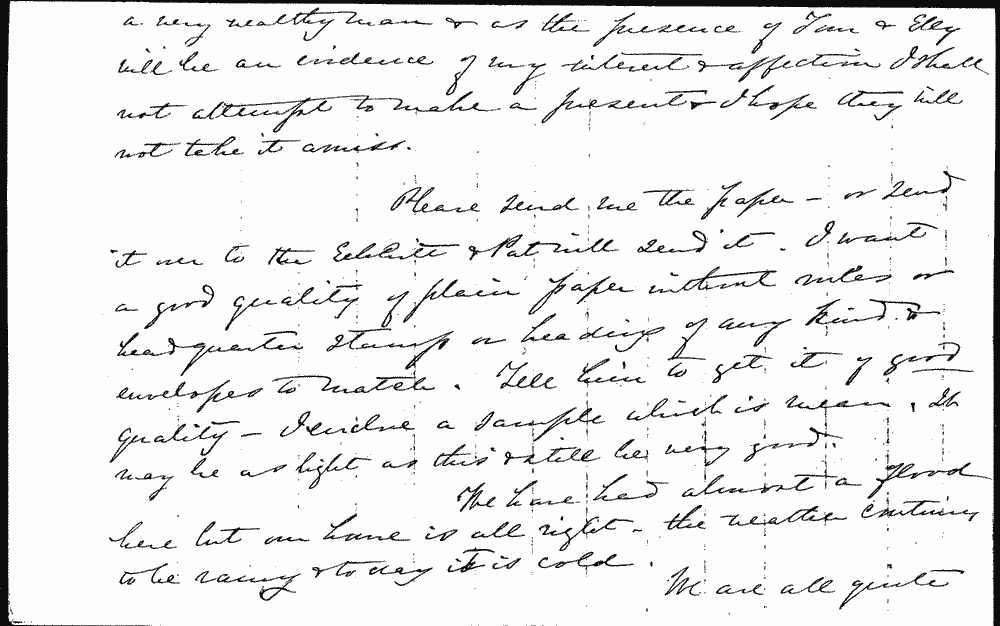 a very wealthy man & as the presence of Tom & Elly
will be an evidence of my interest & affection I shall
not attempt to make a present & I hope they will
not take it amiss.
Please send me the paper – or send
it over to the & Pat will send it. I want
a good quality of plain paper without rules or
headquarter stamps or headings of any kind &
envelopes to match. Tell him to get it of good
quality – I enclose a sample which is mean. It
may be as light as this & still be very good.
We have had almost a flood
here but our house is all right – the weather continues
to be rainy & to day it is cold.
We are all quite